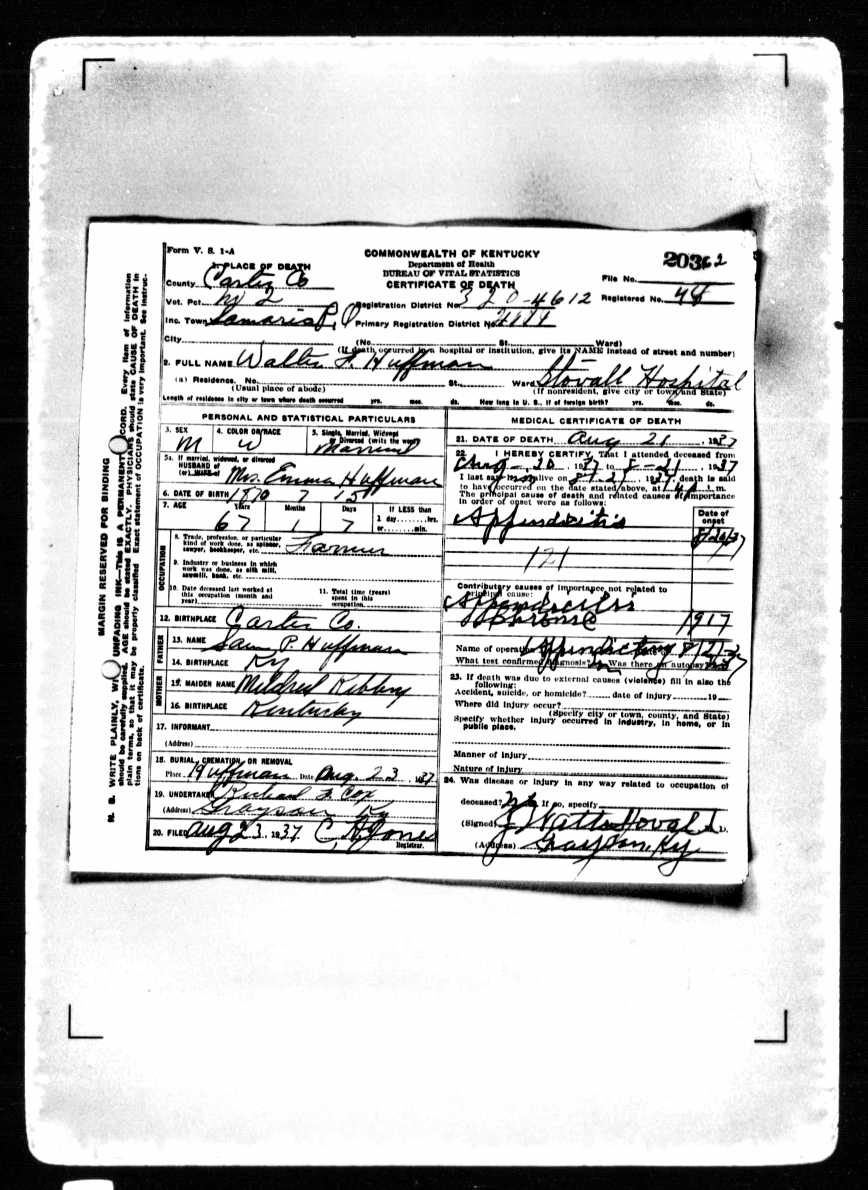 Form V. S. 1-A
COMMONWEALTH OF KENTUCKY
Department of Health
BUREAU OF VITAL STATISTICS
CERTIFICATE OF DEATH
20362
File No.
Registered No. 48
1. PLACE OF DEATH
County Carter Co
Vot. Pct. No 2
Registration District No. 320-4612
Inc. Town
Primary Registration District No.
City (No. St. Ward)
(If death occurred in a hospital or institution, give its NAME instead of street and number)
2. FULL NAME Walter F. Huffman
(a) Residence. No. St., Ward. Stovall Hospital
(Usual place of abode) (If nonresident, give city or town and State)
Length of residence in city or town where death occurred yrs. mos. ds. How long in U. S., if of foreign birth? yrs. mos. ds.
PERSONAL AND STATISTICAL PARTICULARS
3. SEX 4. COLOR OR RACE 5. Single, Married, Widowed or Divorced (write the word)
M W Married
5a. If married, widowed, or divorced
HUSBAND of
(or) WIFE of Mrs. Emma Huffman
6. DATE OF BIRTH 1870 7 15
7. AGE Years Months Days If LESS than
67 1 7 1 day hrs.
or min.
OCCUPATION
8. Trade, profession, or particular
kind of work done, as spinner, Farmer
sawyer, bookkeeper, etc.
9. Industry or business in which
work was done, as silk mill,
sawmill, bank, etc.
10. Date deceased last worked at 11. Total time (years)
this occupation (month and spent in this
year) occupation
12. BIRTHPLACE Carter Co.
FATHER
13. NAME Sam P. Huffman
14. BIRTHPLACE Ky
MOTHER
15. MAIDEN NAME Mildred Kibbey
16. BIRTHPLACE Kentucky
17. INFORMANT
(Address)
18. BURIAL, CREMATION, OR REMOVAL
Place Huffman Date Aug. 23, 1937
19. UNDERTAKER Richard F. Cox
(Address) Grayson Ky
20. FILED Aug 23, 1937 C. H. Jones
Registrar.
MEDICAL CERTIFICATE OF DEATH
21. DATE OF DEATH Aug 21, 1937
22. I HEREBY CERTIFY, That I attended deceased from
Aug - 20, 1937 to 8-21, 1937
I last saw him alive on 8-21, 1937, death is said
to have occurred on the date stated above, at m.
The principal cause of death and related causes of importance
in order of onset were as follows:
Date of onset
Appendicitis 8/20/37
121
Contributory causes of importance not related to
principal cause:
Appendicitis
1917
Name of operation
What test confirmed diagnosis? Was there an autopsy? No
23. If death was due to external causes (violence) fill in also the
following:
Accident, suicide, or homicide? date of injury 19
Where did injury occur?
(Specify city or town, county, and State)
Specify whether injury occurred in industry, in home, or in
public place.
Manner of injury
Nature of injury
24. Was disease or injury in any way related to occupation of
deceased? No If so, specify
(Signed) J Watts Stovall M. D.
(Address) Grayson, Ky
MARGIN RESERVED FOR BINDING
N. B. WRITE PLAINLY, WITH UNFADING INK—THIS IS A PERMANENT RECORD. Every item of information
should be carefully supplied. AGE should be stated EXACTLY. PHYSICIANS should state CAUSE OF DEATH in
plain terms, so that it may be properly classified. Exact statement of OCCUPATION is very important. See instruc-
tions on back of certificate.